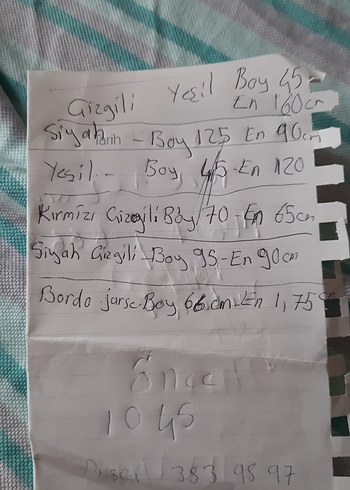 Çizgili Yeşil Boy 45-
En 160cm
Siyah - Boy 125 En 90cm
Yeşil - Boy 45 - En 120
Kırmızı Çizgili Boy 70 - En 65cm
Siyah Çizgili - Boy 95 - En 90cm
Bordo jarse Boy 66 cm - En 1,75
1045
383 98 97